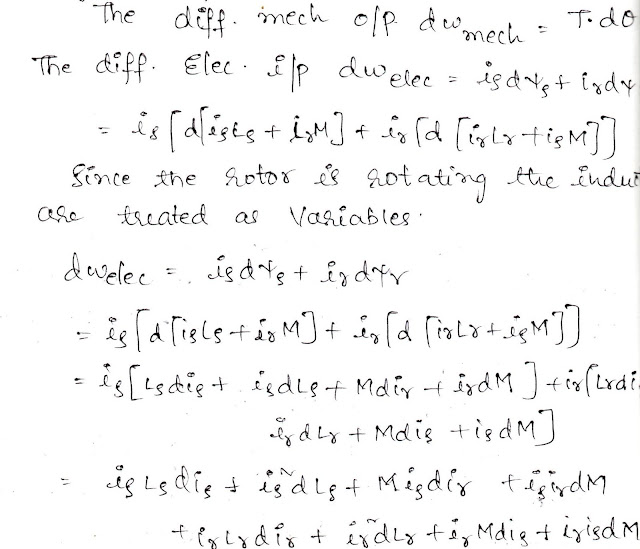 The diff. mech o/p dw mech = T.dθ
The diff. Elec. i/p dw elec = isdψs + irdψ
= is[d[isLs + irM] + ir[d[irLr + isM]]
Since the rotor is rotating the induc
are treated as Variables.
dwelec = isdψs + irdψr
= is[d[isLs + irM] + ir[d[irLr + isM]]
= is[Lsdis + isdLs + Mdir + irdM] + ir[Lrdi
irdLr + Mdis + isdM]
= isLsdis + is²dLs + Misdir + isirdM
+ irLrdir + ir²dLr + irMdis + irisdM